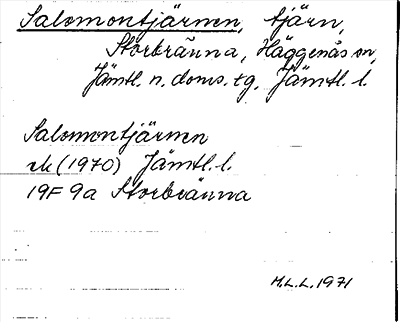 Salomontjärnen, tjärn,
Storbränna, Häggenås sn,
Jämtl. n. doms. tg, Jämtl. l.
Salomontjärnen
ek (1970) Jämtl. l.
19F 9a Storbränna
M.L.L. 1971